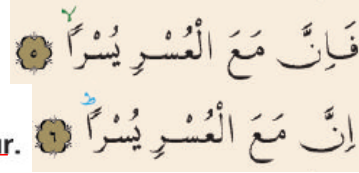 فَاِنَّ مَعَ الْعُسْرِ يُسْرًاۙ ٥
ur. اِنَّ مَعَ الْعُسْرِ يُسْرًاۜ ٦